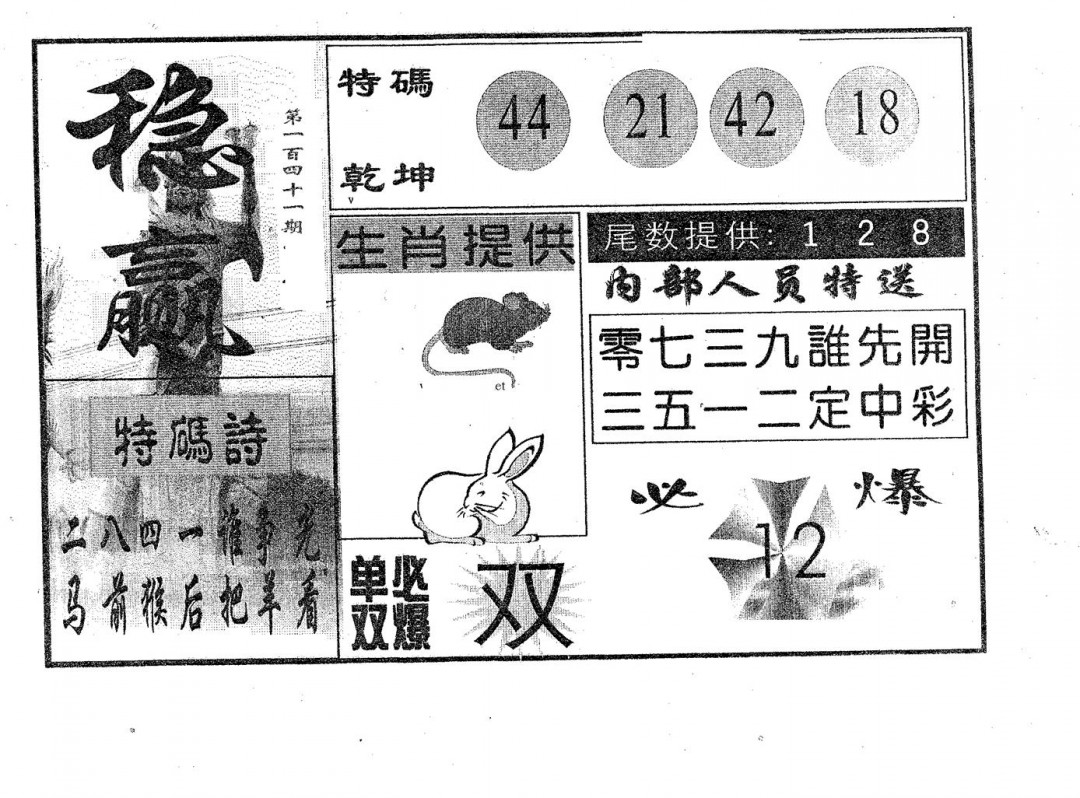 稳赢
第一百四十一期
特碼
乾坤
44 21 42 18
生肖提供
et
尾数提供: 1 2 8
内部人员特送
零七三九誰先開
三五一二定中彩
特碼詩
二八四一谁争先
马前猴后把羊看
单双必爆
双
必爆
12